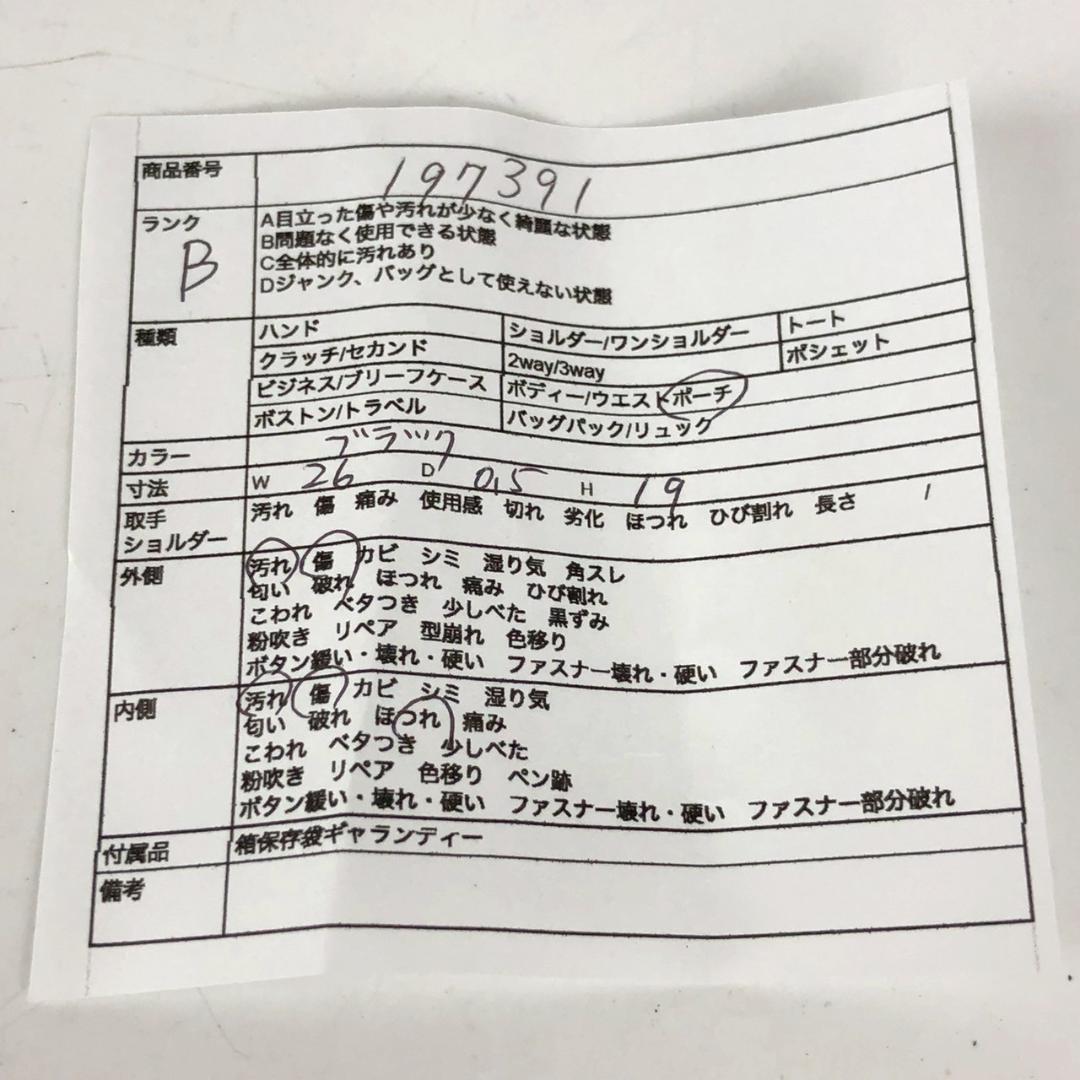 商品番号 197391
ランク B
A目立った傷や汚れが少なく綺麗な状態
B問題なく使用できる状態
C全体的に汚れあり
Dジャンク、バッグとして使えない状態
種類
ハンド ショルダー/ワンショルダー トート
クラッチ/セカンド 2way/3way ポシェット
ビジネス/ブリーフケース ボディー/ウエストポーチ
ボストン/トラベル バッグパック/リュック
カラー ブラック
寸法 W 26 D 0,5 H 19
取手 汚れ 傷 痛み 使用感 切れ 劣化 ほつれ ひび割れ 長さ
ショルダー
外側 汚れ 傷 カビ シミ 湿り気 角スレ
匂い 破れ ほつれ 痛み ひび割れ
こわれ ベタつき 少しべた 黒ずみ
粉吹き リペア 型崩れ 色移り
ボタン緩い・壊れ・硬い ファスナー壊れ・硬い ファスナー部分破れ
内側 汚れ 傷 カビ シミ 湿り気
匂い 破れ ほつれ 痛み
こわれ ベタつき 少しべた
粉吹き リペア 色移り ペン跡
ボタン緩い・壊れ・硬い ファスナー壊れ・硬い ファスナー部分破れ
付属品 箱保存袋ギャランティー
備考